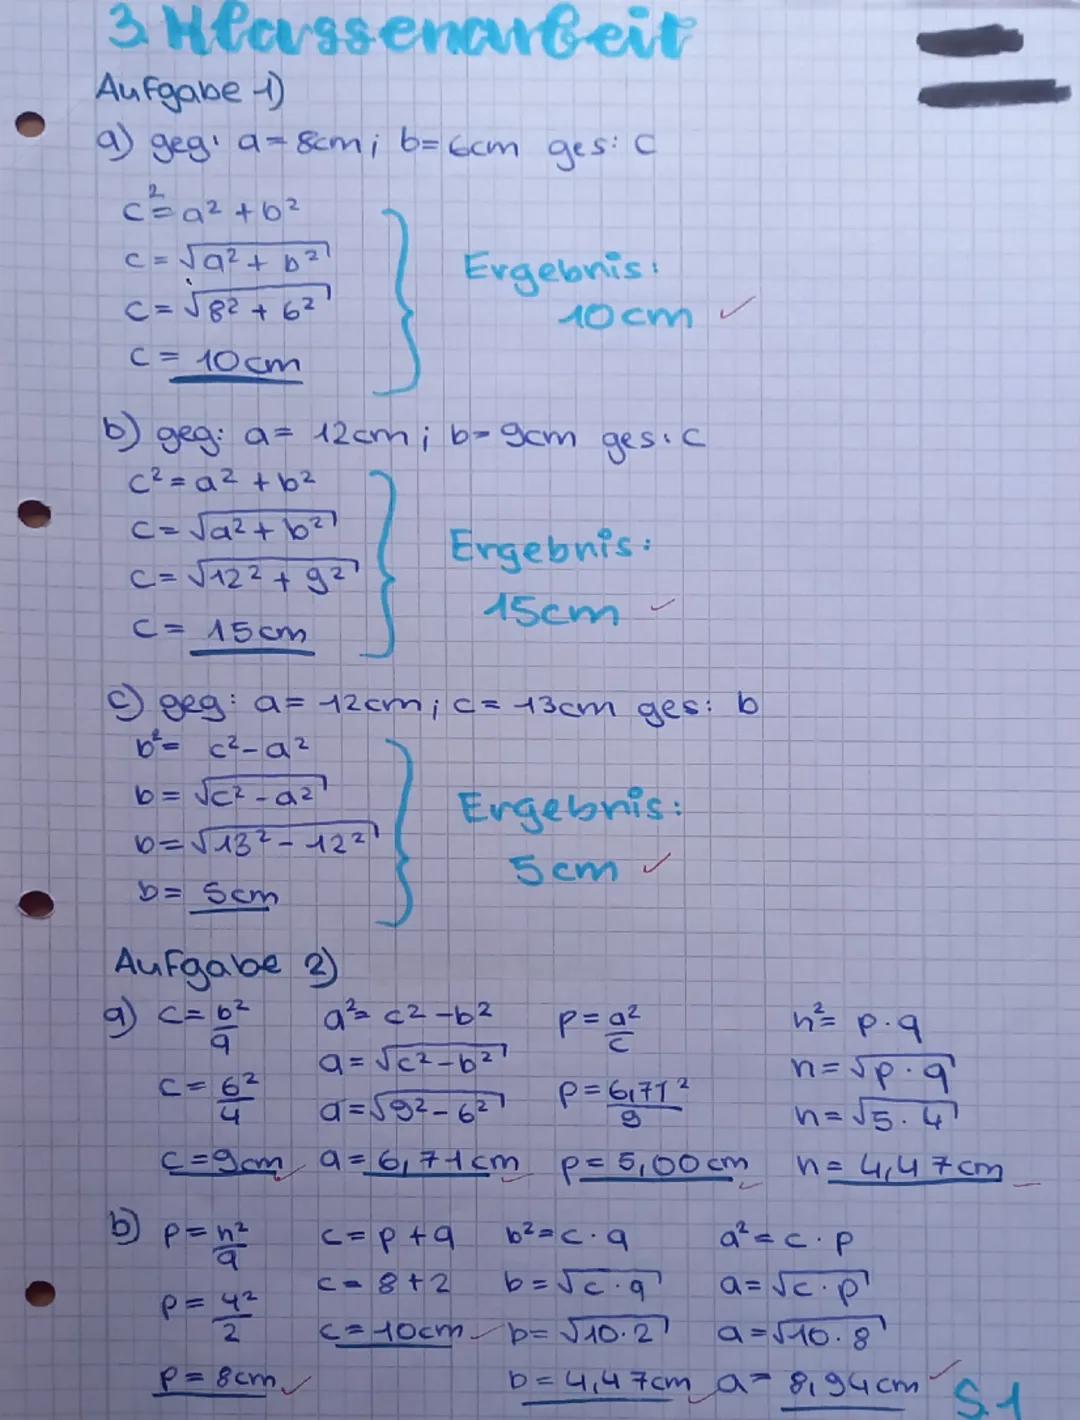 3. Klassenarbeit
Aufgabe 1)
a) geg: a = 8cm; b = 6cm ges: c
c² = a² + b²
c = √a² + b²
c = √8² + 6²
c = 10cm
Ergebnis:
10cm ✓
b) geg: a = 12cm; b = 9cm ges: c
c² = a² + b²
c = √a² + b²
c = √12² + 9²
c = 15cm
Ergebnis:
15cm ✓
c) geg: a = 12cm; c = 13cm ges: b
b² = c² - a²
b = √c² - a²
b = √13² - 12²
b = 5cm
Ergebnis:
5cm ✓
Aufgabe 2)
a) c = b²/q
c = 6²/4
c = 9cm ✓
a² = c² - b²
a = √c² - b²
a = √9² - 6²
a = 6,71cm ✓
p = a²/c
p = 6,71²/9
p = 5,00cm ✓
h² = p · q
h = √p · q
h = √5 · 4
h = 4,47cm ✓
b) p = h²/q
p = 4²/2
p = 8cm ✓
c = p + q
c = 8 + 2
c = 10cm ✓
b² = c · q
b = √c · q
b = √10 · 2
b = 4,47cm ✓
a² = c · p
a = √c · p
a = √10 · 8
a = 8,94cm ✓
S.1